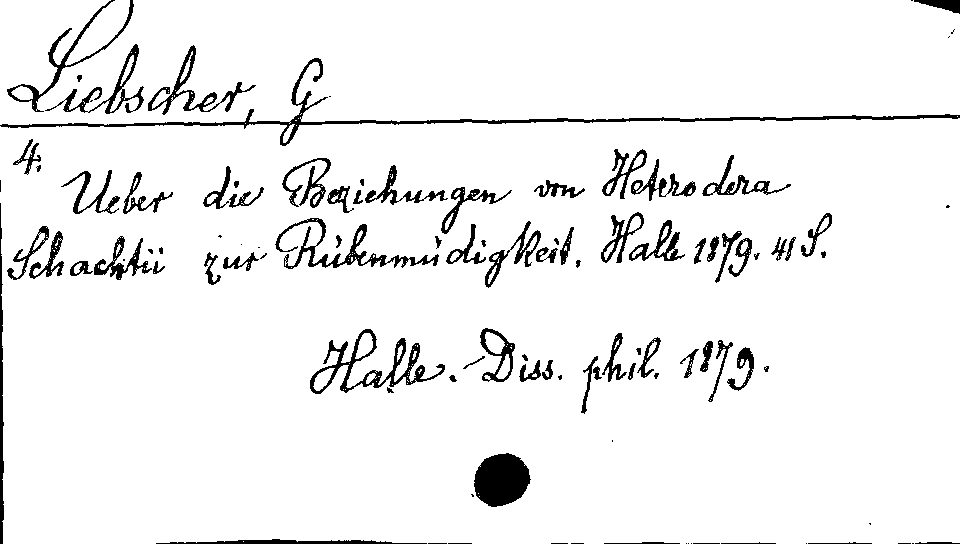 Liebscher, G
4.
Ueber die Beziehungen von Heterodera
Schachtii zur Rübenmüdigkeit. Halle 1879. 41 S.
Halle.-Diss. phil. 1879.